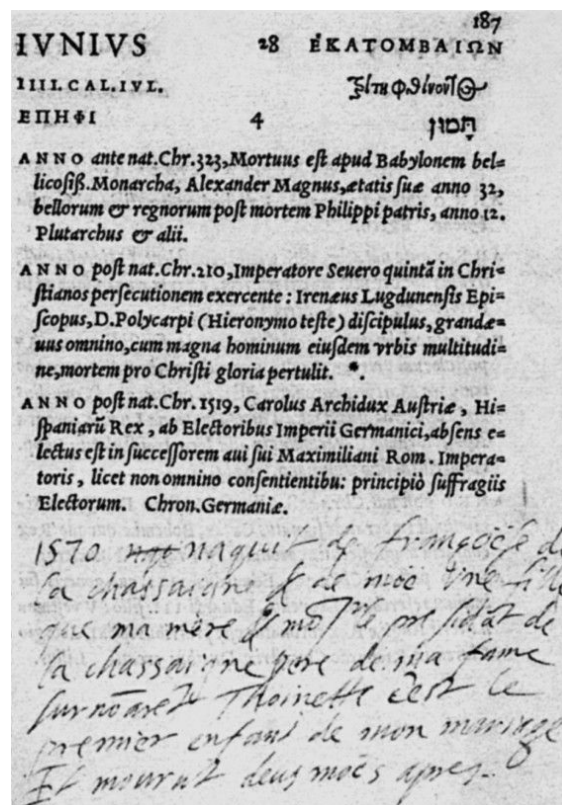 187
IVNIVS 28 ΕΚΑΤΟΜΒΑΙΩΝ
IIII. CAL. IVL.
ΕΠΗΦΙ 4 תמון
ANNO ante nat. Chr. 323, Mortuus est apud Babylonem bel=
licosiß. Monarcha, Alexander Magnus, ætatis suæ anno 32,
bellorum & regnorum post mortem Philippi patris, anno 12.
Plutarchus & alii.
ANNO post nat. Chr. 210, Imperatore Seuero quintā in Chri=
stianos persecutionem exercente: Irenæus Lugdunensis Epi=
scopus, D. Polycarpi (Hieronymo teste) discipulus, grandæ=
uus omnino, cum magna hominum eiusdem vrbis multitudi=
ne, mortem pro Christi gloria pertulit.
ANNO post nat. Chr. 1519, Carolus Archidux Austriæ, Hi=
spaniarū Rex, ab Electoribus Imperii Germanici, absens e=
lectus est in successorem aui sui Maximiliani Rom. Impera=
toris, licet non omnino consentientibu: principiò suffragiis
Electorum. Chron. Germaniæ.
1570 naquit de françoise de
la chassaigne & de moi une fille
que ma mere & mōr le presidāt de
la chassaigne pere de ma fame
surnōarēt Thoinette c'est le
premier enfant de mon mariage
Et mourut deus mois apres.